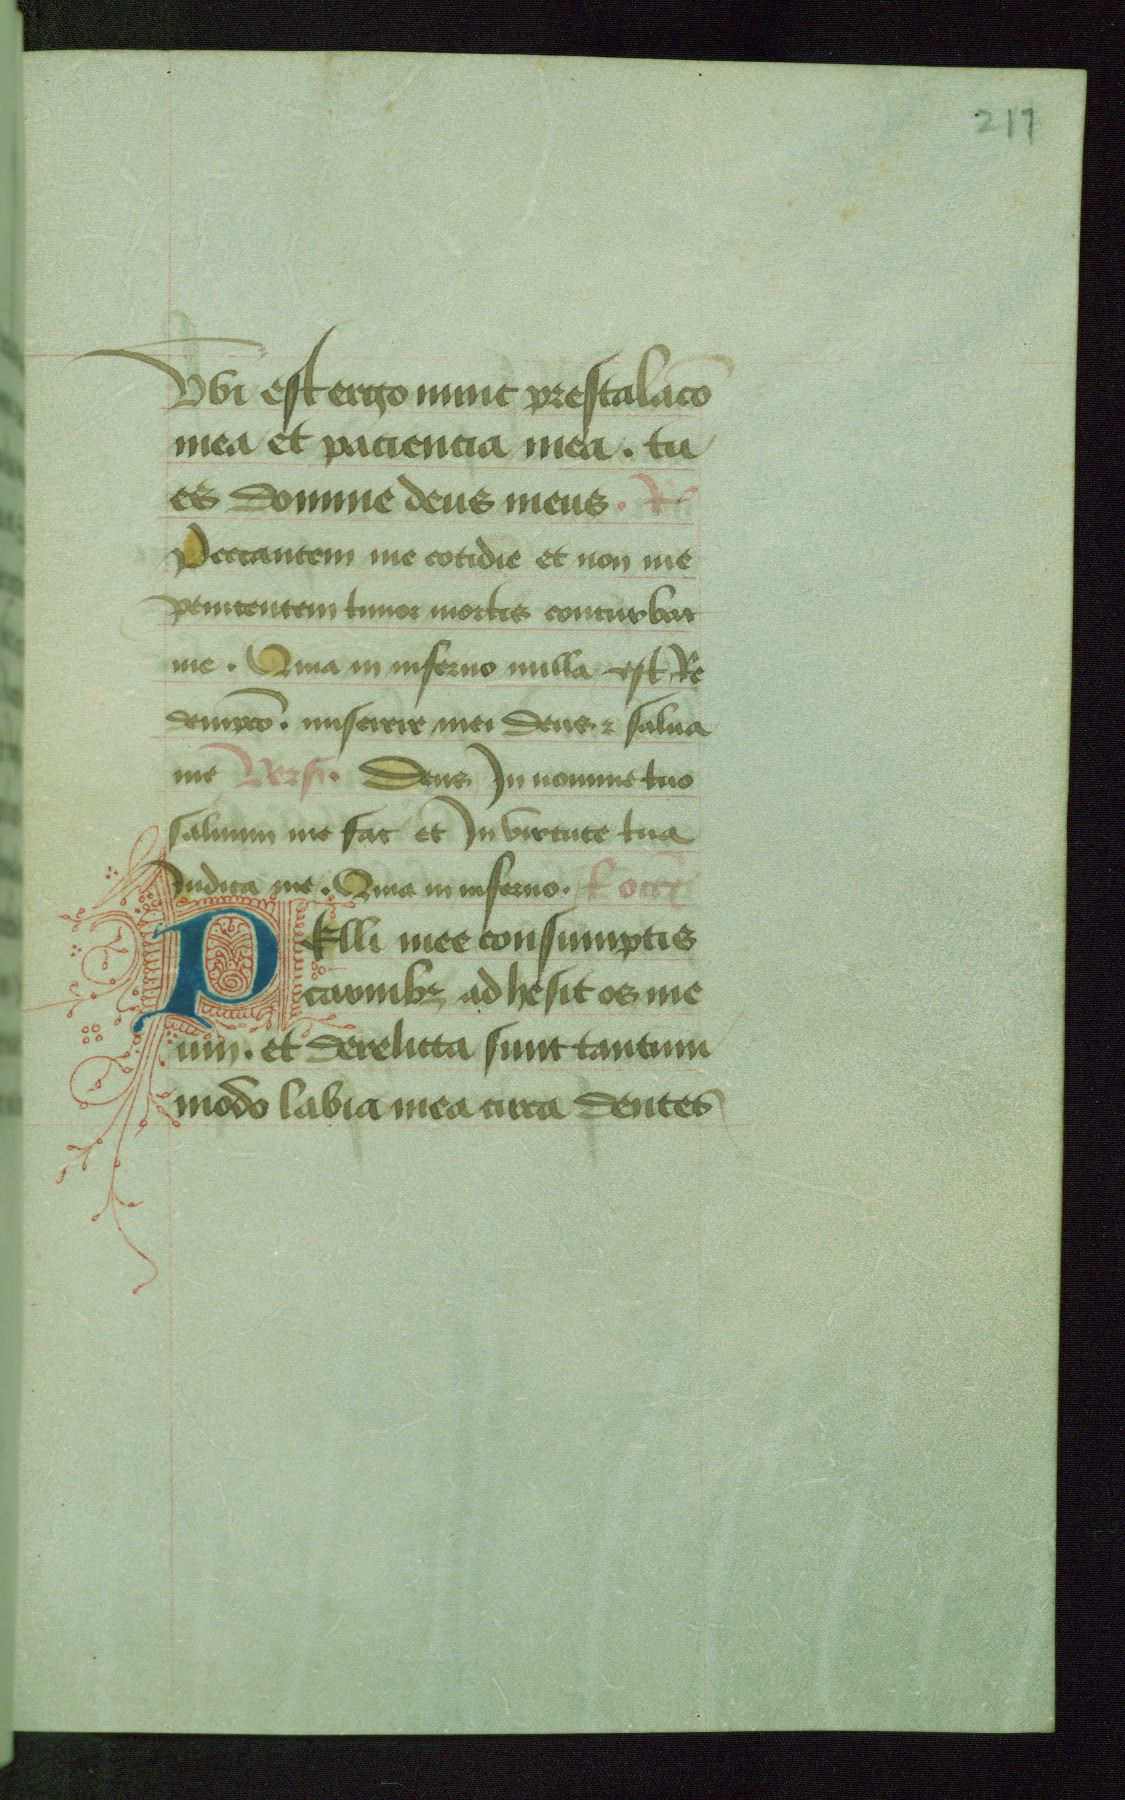 217
Vbi est ergo nunc prestolacō
mea et paciencia mea . tu
es domine deus meus . R̄
Peccantem me cotidie et non me
penitentem timor mortis conturbat
me . Quia in inferno nulla est Re
dempcō . miserere mei deus ⁊ salua
me Vers̄ . Deus In nomine tuo
saluum me fac et In virtute tua
Iudica me . Quia in inferno .
PElli mee consumptis
carnibꝫ adhesit os me
um . et derelicta sunt tantum
modo labia mea circa dentes